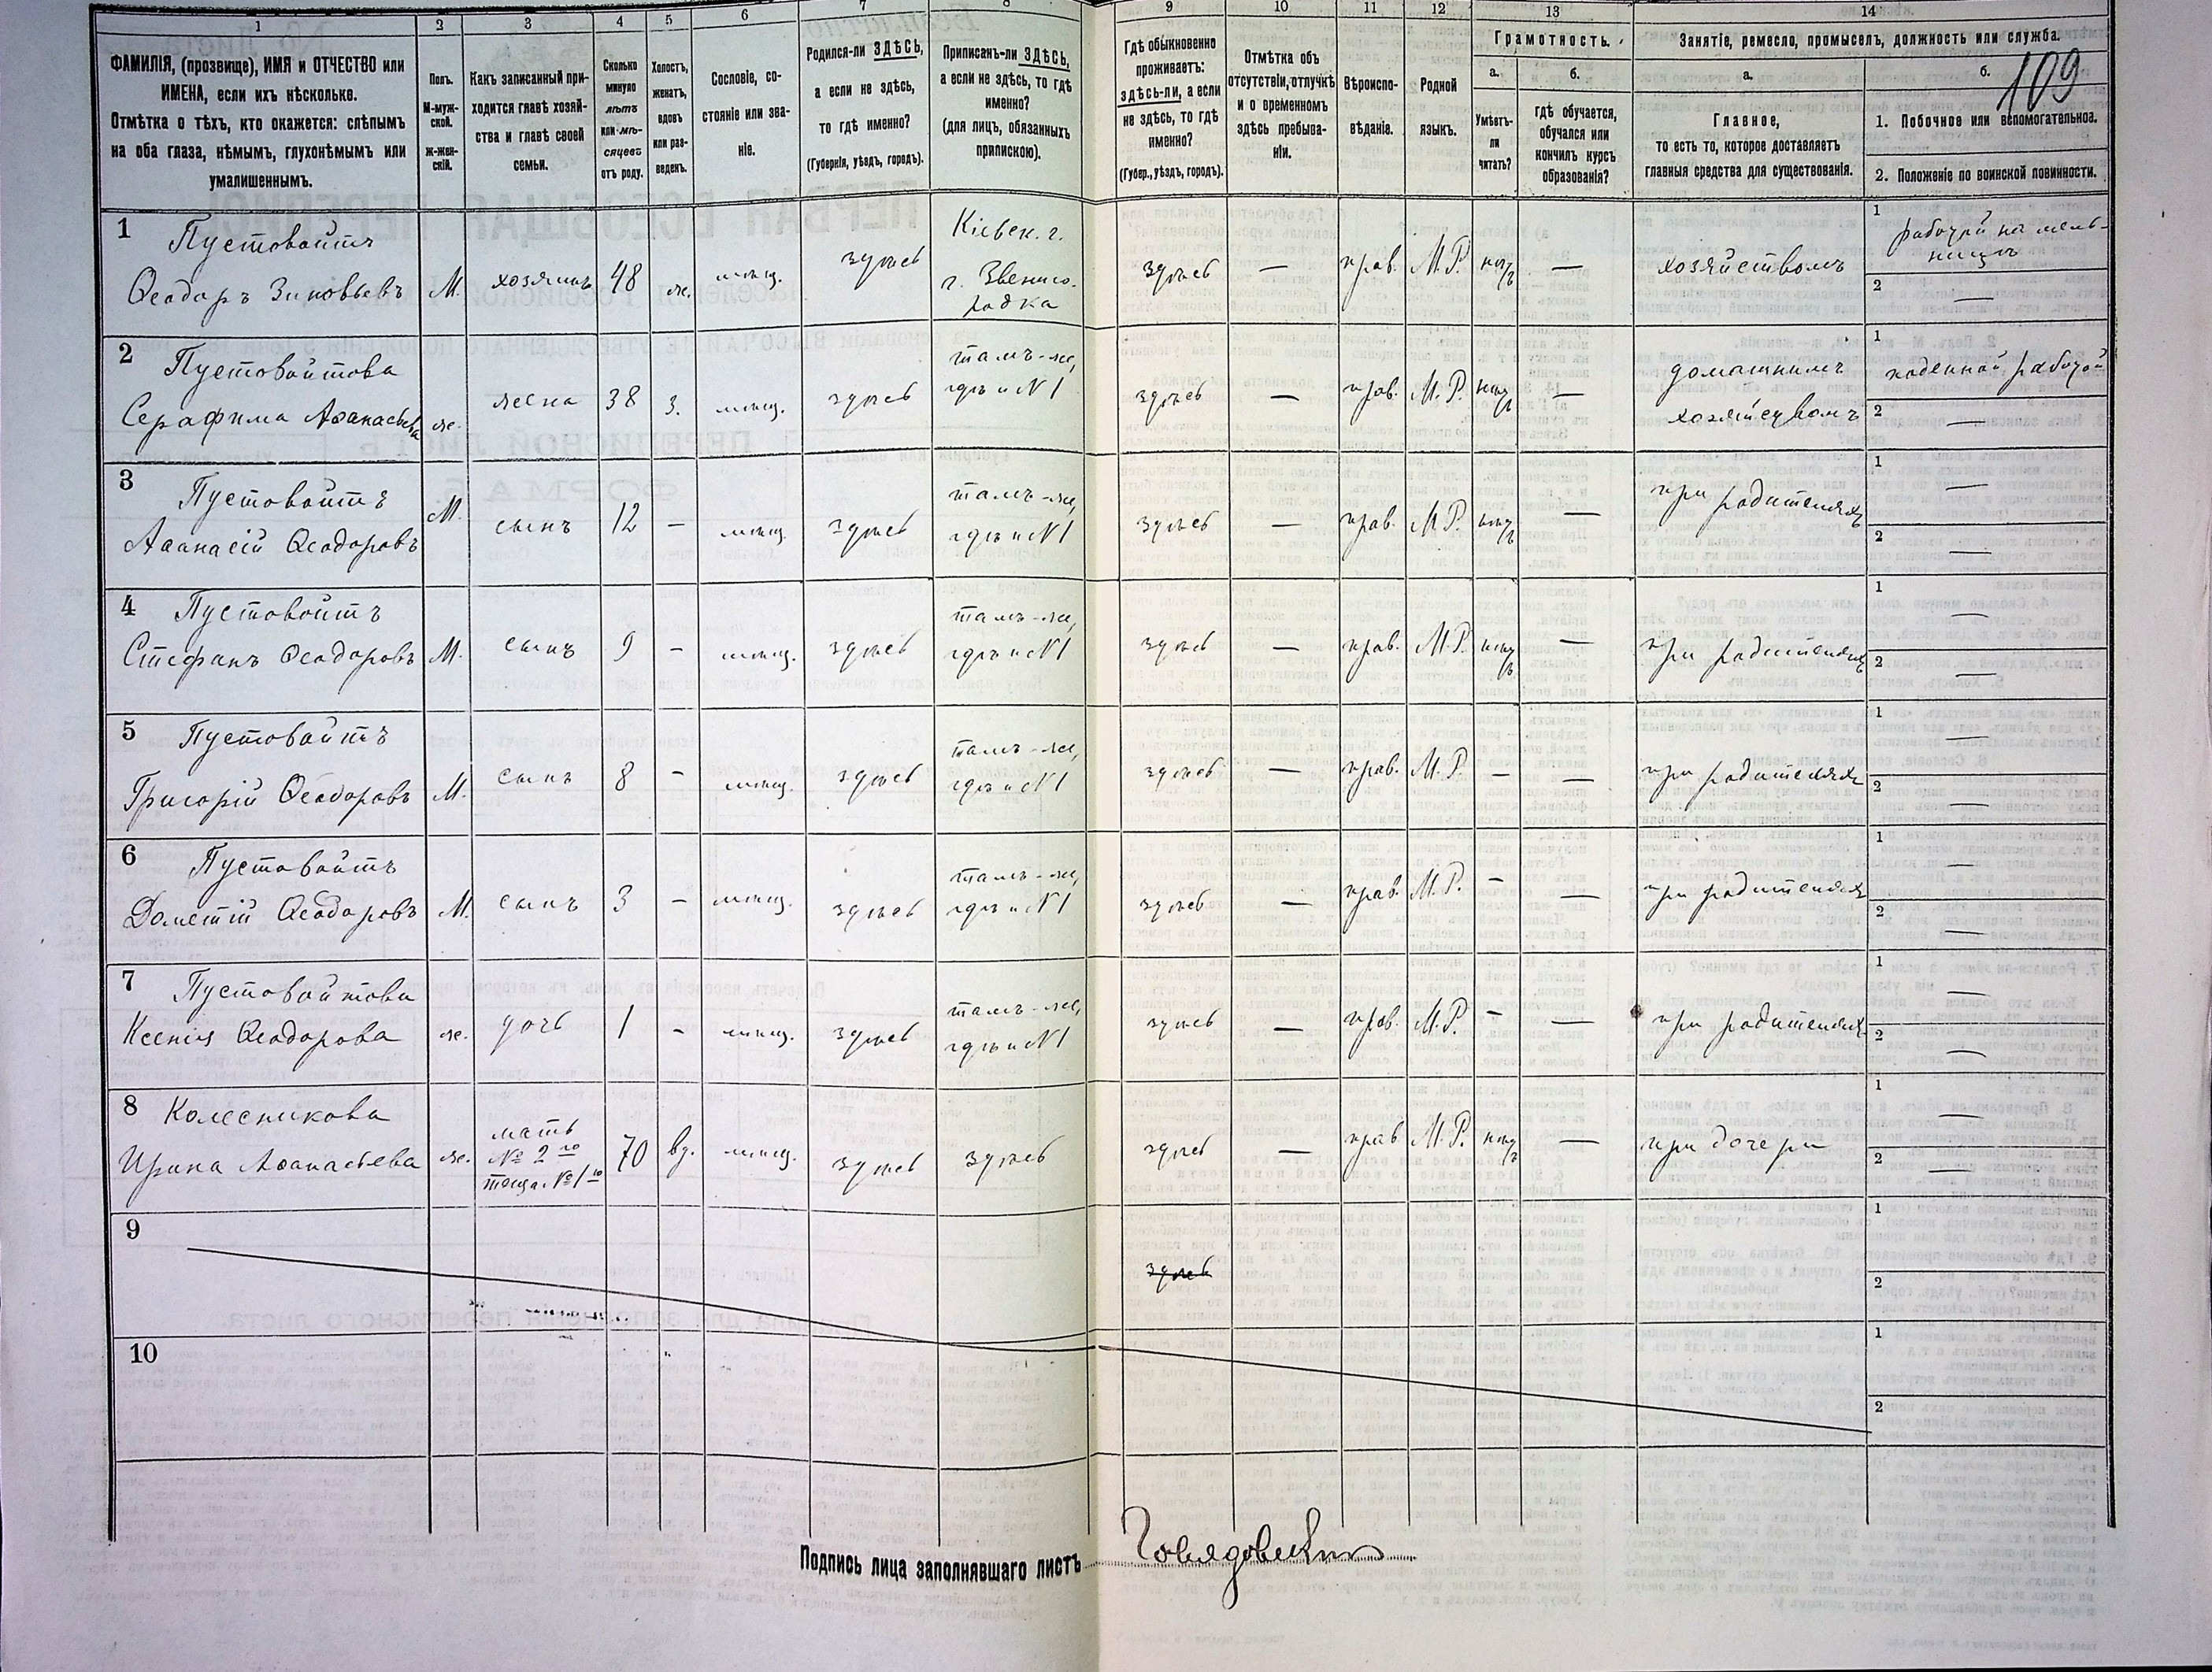 1 2 3 4 5 6 7 8 9 10 11 12 13 14
ФАМИЛІЯ, (прозвище), ИМЯ и ОТЧЕСТВО или
ИМЕНА, если ихъ нѣсколько.
Отмѣтка о тѣхъ, кто окажется: слѣпымъ
на оба глаза, нѣмымъ, глухонѣмымъ или
умалишеннымъ.
Полъ.
М-муж-
ской.
ж-жен-
скій.
Какъ записанный при-
ходится главѣ хозяй-
ства и главѣ своей
семьи.
Сколько
минуло
лѣтъ
или мѣ-
сяцевъ
отъ роду.
Холостъ,
женатъ,
вдовъ
или раз-
веденъ.
Сословіе, со-
стояніе или зва-
ніе.
Родился-ли ЗДѢСЬ,
а если не здѣсь,
то гдѣ именно?
(Губернія, уѣздъ, городъ).
Приписанъ-ли ЗДѢСЬ,
а если не здѣсь, то гдѣ
именно?
(для лицъ, обязанныхъ
припискою).
Гдѣ обыкновенно
проживаетъ:
здѣсь-ли, а если
не здѣсь, то гдѣ
именно?
(Губер., уѣздъ, городъ).
Отмѣтка объ
отсутствіи, отлучкѣ
и о временномъ
здѣсь пребыва-
ніи.
Вѣроиспо-
вѣданіе.
Родной
языкъ.
Грамотность.
а.
Умѣетъ-
ли
читать?
б.
Гдѣ обучается,
обучался или
кончилъ курсъ
образованія?
Занятіе, ремесло, промыселъ, должность или служба.
а.
Главное,
то есть то, которое доставляетъ
главныя средства для существованія.
б.
109
1. Побочное или вспомогательное.
2. Положеніе по воинской повинности.
1 Пустовойтъ
Ѳеодоръ Зиновьевъ М. хозяинъ 48 ж. мѣщ. здѣсь
Кіевск. г.
г. Звениго-
родка
здѣсь — прав. М.Р. нѣтъ — хозяйствомъ
1 рабочій на мель-
ницѣ
2 —
2 Пустовойтова
Серафима Аѳанасьева ж. жена 38 з. мѣщ. здѣсь
тамъ-же,
гдѣ и №1
здѣсь — прав. М.Р. нѣтъ —
домашнимъ
хозяйствомъ
1 поденной работой
2 —
3 Пустовойтъ
Аѳанасій Ѳеодоровъ М. сынъ 12 - мѣщ. здѣсь
тамъ-же,
гдѣ и №1
здѣсь — прав. М.Р. нѣтъ — при родителяхъ
1 —
2 —
4 Пустовойтъ
Стефанъ Ѳеодоровъ М. сынъ 9 - мѣщ. здѣсь
тамъ-же,
гдѣ и №1
здѣсь — прав. М.Р. нѣтъ — при родителяхъ
1 —
2 —
5 Пустовойтъ
Григорій Ѳеодоровъ М. сынъ 8 - мѣщ. здѣсь
тамъ-же,
гдѣ и №1
здѣсь — прав. М.Р. - — при родителяхъ
1 —
2 —
6 Пустовойтъ
Дометій Ѳеодоровъ М. сынъ 3 - мѣщ. здѣсь
тамъ-же,
гдѣ и №1
здѣсь — прав. М.Р. - — при родителяхъ
1 —
2 —
7 Пустовойтова
Ксенія Ѳеодорова ж. дочь 1 - мѣщ. здѣсь
тамъ-же,
гдѣ и №1
здѣсь — прав. М.Р. - — при родителяхъ
1 —
2 —
8 Колесникова
Ирина Аѳанасьева ж.
мать
№ 2го
теща. №1го
70 вд. мѣщ. здѣсь здѣсь здѣсь — прав М.Р. нѣтъ — при дочери
1 —
2 —
9
здѣсь
1
2
10
1
2
Подпись лица заполнявшаго листъ